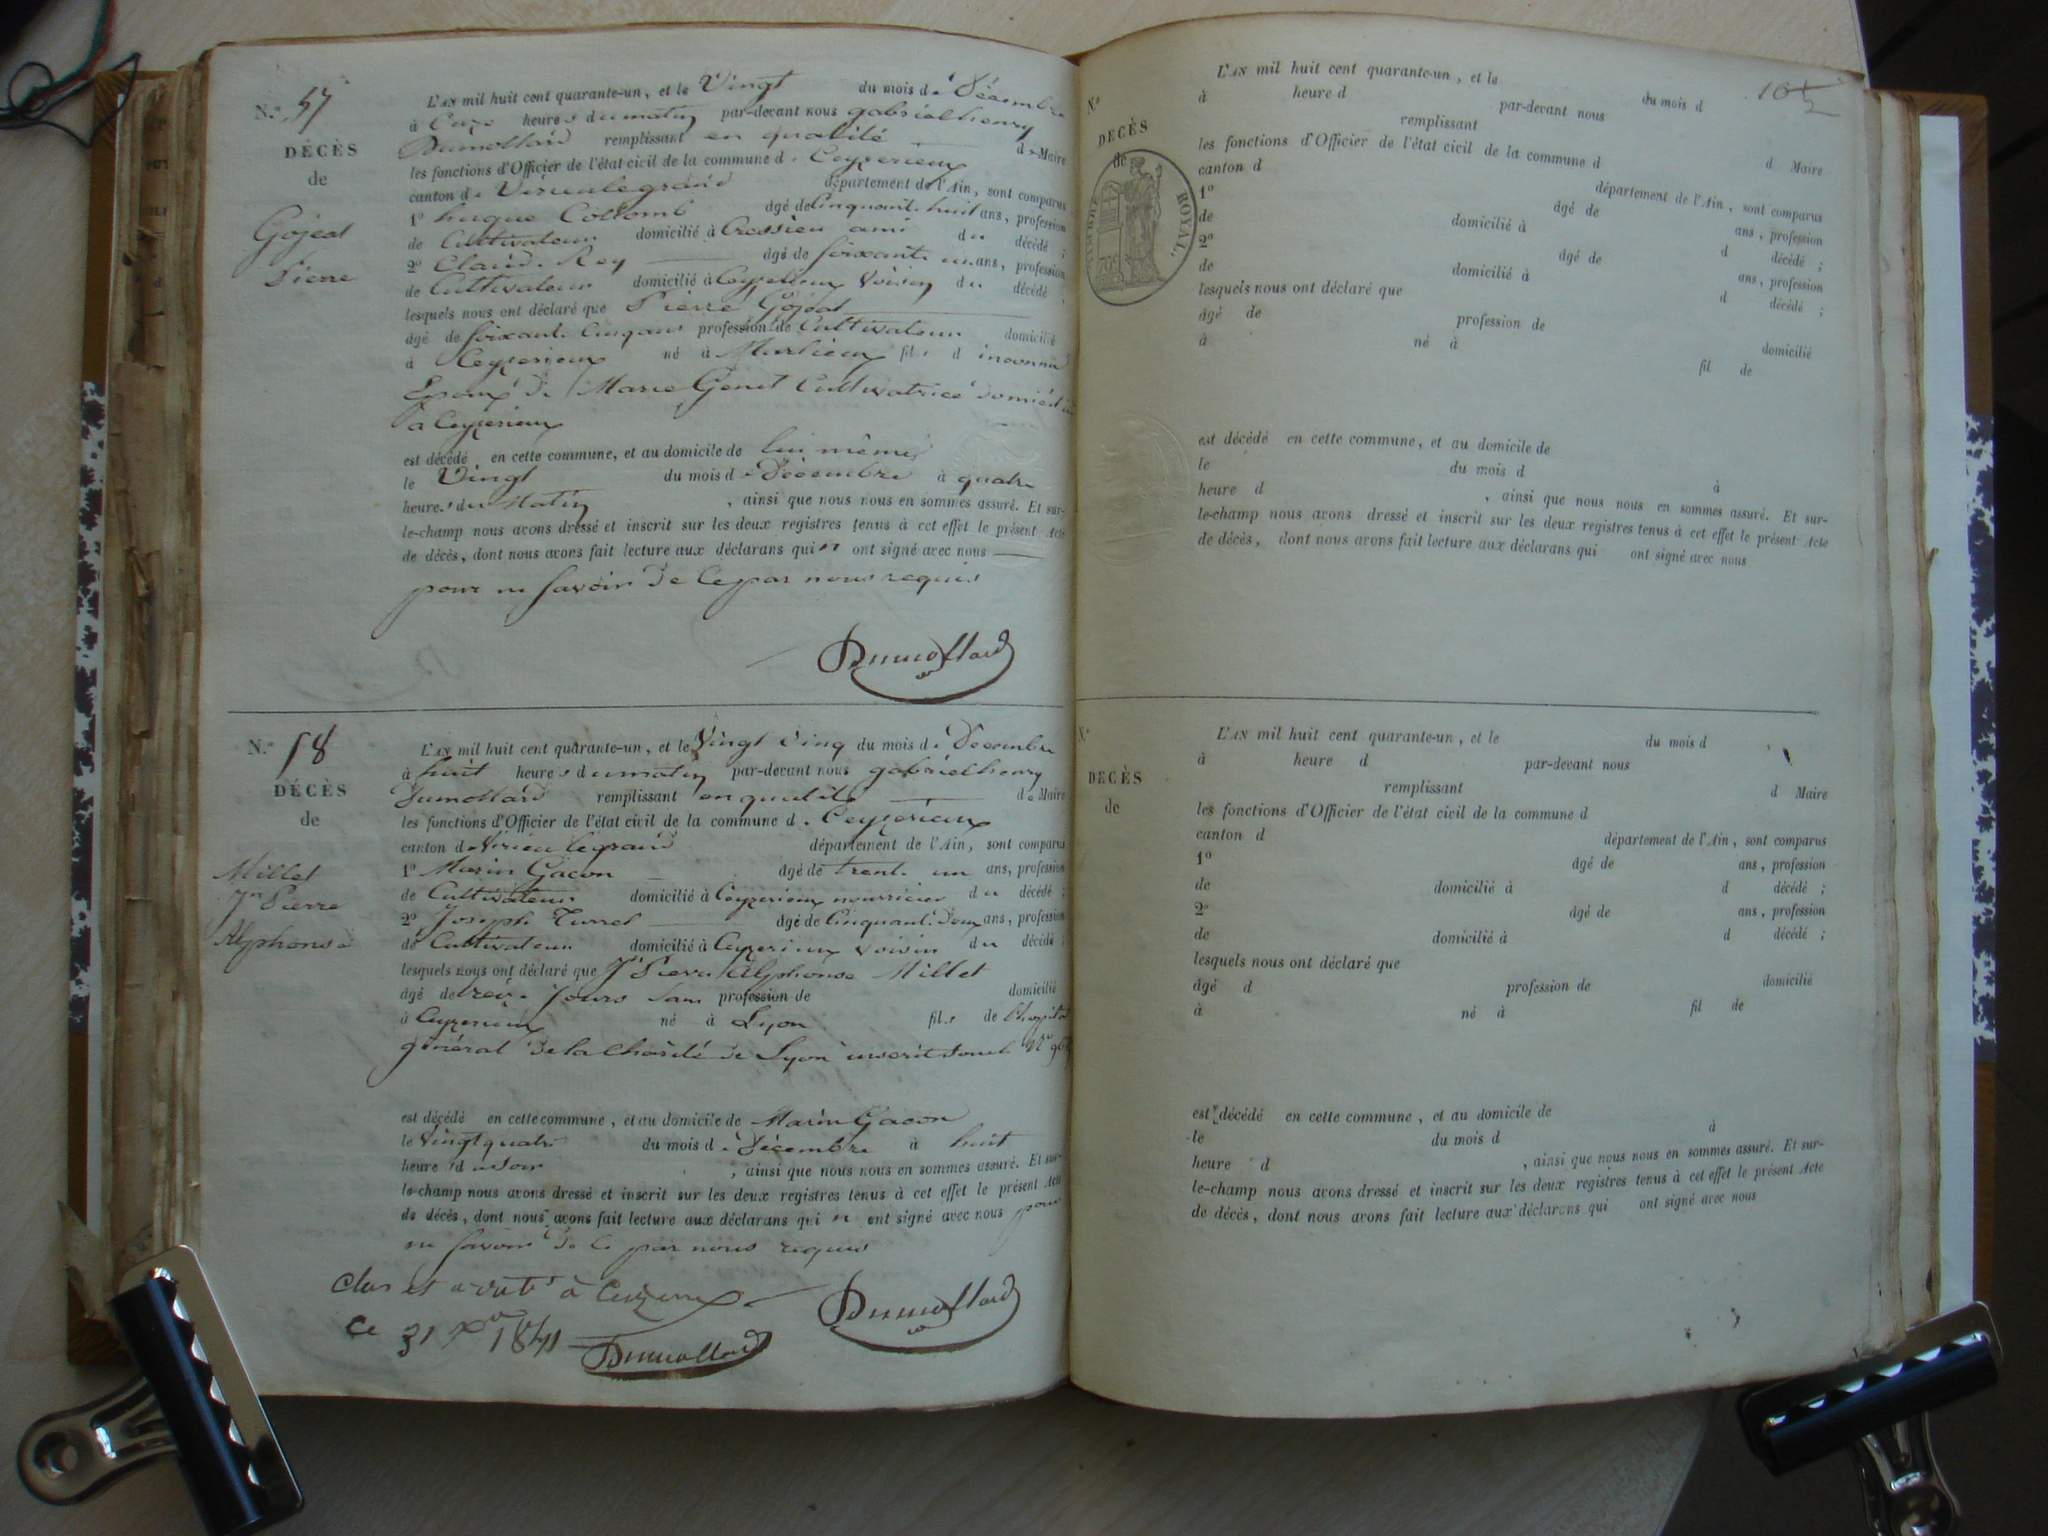 N.º 57
DÉCÈS
de
Gojeat
Pierre
L'AN mil huit cent quarante-un, et le Vingt du mois de Décembre
à onze heures du matin par-devant nous gabriel henry
Dumollard remplissant en qualité de Maire
les fonctions d'Officier de l'état civil de la commune de Ceyzerieux
canton de Virieu le grand département de l'Ain, sont comparus
1º hugue Collomb âgé de Cinquante huit ans, profession
de Cultivateur domicilié à Cressieu ami du décédé ;
2º Claude Rey âgé de soixante un ans, profession
de Cultivateur domicilié à Ceyzerieux Voisin du décédé ;
lesquels nous ont déclaré que Pierre Gojeat
âgé de soixante cinq ans profession de Cultivateur domicilié
à Ceyzerieux né à Marlieux fils d inconnu
Epoux de Marie Genet Cultivatrice domiciliée
à Ceyzerieux
est décédé en cette commune, et au domicile de lui même
le Vingt du mois de Décembre à quatre
heures du Matin , ainsi que nous nous en sommes assuré. Et sur-
le-champ nous avons dressé et inscrit sur les deux registres tenus à cet effet le présent Acte
de décès, dont nous avons fait lecture aux déclarans qui n'ont signé avec nous
pour ne savoir de ce par nous requis
Dumollard
N.º 58
DÉCÈS
de
Millet
Jn Pierre
Alphonse
L'AN mil huit cent quarante-un, et le Vingt Cinq du mois de Decembre
à huit heures du matin par-devant nous gabriel henry
Dumollard remplissant en qualité de Maire
les fonctions d'Officier de l'état civil de la commune de Ceyzerieux
canton de Virieu le grand département de l'Ain, sont comparus
1º Marin Gacon âgé de trente un ans, profession
de Cultivateur domicilié à Ceyzerieux nourricier du décédé ;
2º Joseph Turrel âgé de Cinquante Deux ans, profession
de Cultivateur domicilié à Ceyzerieux Voisin du décédé ;
lesquels nous ont déclaré que Jn Pierre Alphonse Millet
âgé de jours sans profession de domicilié
à Ceyzerieux né à Lyon fils de l'hopital
général de la Charité de Lyon inscrit sous le Nº
est décédé en cette commune, et au domicile de Marin Gacon
le Vingt quatre du mois de Décembre à huit
heure du soir , ainsi que nous nous en sommes assuré. Et sur-
le-champ nous avons dressé et inscrit sur les deux registres tenus à cet effet le présent Acte
de décès, dont nous avons fait lecture aux déclarans qui n'ont signé avec nous pour
ne savoir de ce par nous requis
Clos et arreté à Ceyzerieux
Dumollard
Ce 31 Xbre 1841
Dumollard
N.º
DÉCÈS
de
TIMBRE ROYAL.
L'AN mil huit cent quarante-un, et le du mois d
à heure d par-devant nous
remplissant d Maire
les fonctions d'Officier de l'état civil de la commune d
canton d département de l'Ain, sont comparus
1º âgé de ans, profession
de domicilié à d décédé ;
2º âgé de ans, profession
de domicilié à d décédé ;
lesquels nous ont déclaré que
âgé de profession de domicilié
à né à fil de
est décédé en cette commune, et au domicile de
le du mois d à
heure d , ainsi que nous nous en sommes assuré. Et sur-
le-champ nous avons dressé et inscrit sur les deux registres tenus à cet effet le présent Acte
de décès, dont nous avons fait lecture aux déclarans qui ont signé avec nous
N.º
DÉCÈS
de
L'AN mil huit cent quarante-un, et le du mois d
à heure d par-devant nous
remplissant d Maire
les fonctions d'Officier de l'état civil de la commune d
canton d département de l'Ain, sont comparus
1º âgé de ans, profession
de domicilié à d décédé ;
2º âgé de ans, profession
de domicilié à d décédé ;
lesquels nous ont déclaré que
âgé d profession de domicilié
à né à fil de
est décédé en cette commune, et au domicile de
le du mois d à
heure d , ainsi que nous nous en sommes assuré. Et sur-
le-champ nous avons dressé et inscrit sur les deux registres tenus à cet effet le présent Acte
de décès, dont nous avons fait lecture aux déclarans qui ont signé avec nous